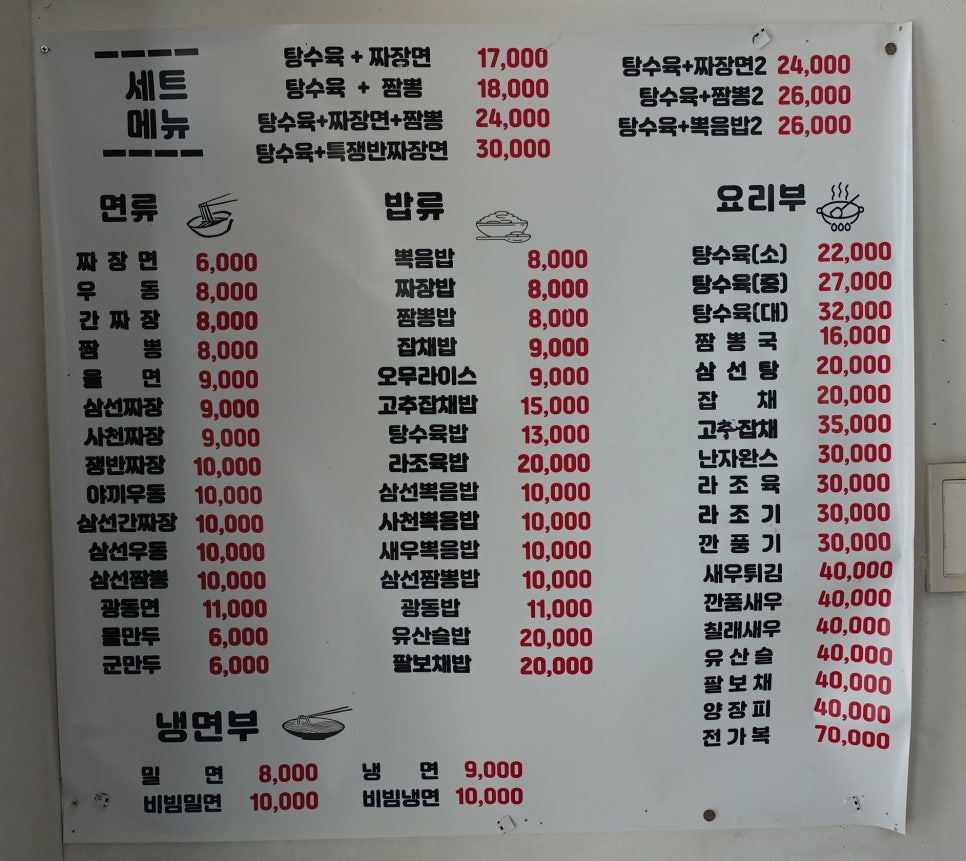 세트
메뉴
탕수육 + 짜장면 17,000
탕수육 + 짬뽕 18,000
탕수육+짜장면+짬뽕 24,000
탕수육+특쟁반짜장면 30,000
탕수육+짜장면2 24,000
탕수육+짬뽕2 26,000
탕수육+뽁음밥2 26,000
면류
짜장면 6,000
우동 8,000
간짜장 8,000
짬뽕 8,000
울면 9,000
삼선짜장 9,000
사천짜장 9,000
쟁반짜장 10,000
야끼우동 10,000
삼선간짜장 10,000
삼선우동 10,000
삼선짬뽕 10,000
광동면 11,000
물만두 6,000
군만두 6,000
밥류
뽁음밥 8,000
짜장밥 8,000
짬뽕밥 8,000
잡채밥 9,000
오무라이스 9,000
고추잡채밥 15,000
탕수육밥 13,000
라조육밥 20,000
삼선뽁음밥 10,000
사천뽁음밥 10,000
새우뽁음밥 10,000
삼선짬뽕밥 10,000
광동밥 11,000
유산슬밥 20,000
팔보채밥 20,000
요리부
탕수육(소) 22,000
탕수육(중) 27,000
탕수육(대) 32,000
짬뽕국 16,000
삼선탕 20,000
잡채 20,000
고추잡채 35,000
난자완스 30,000
라조육 30,000
라조기 30,000
깐풍기 30,000
새우튀김 40,000
깐풍새우 40,000
칠래새우 40,000
유산슬 40,000
팔보채 40,000
양장피 40,000
전가복 70,000
냉면부
밀면 8,000
비빔밀면 10,000
냉면 9,000
비빔냉면 10,000